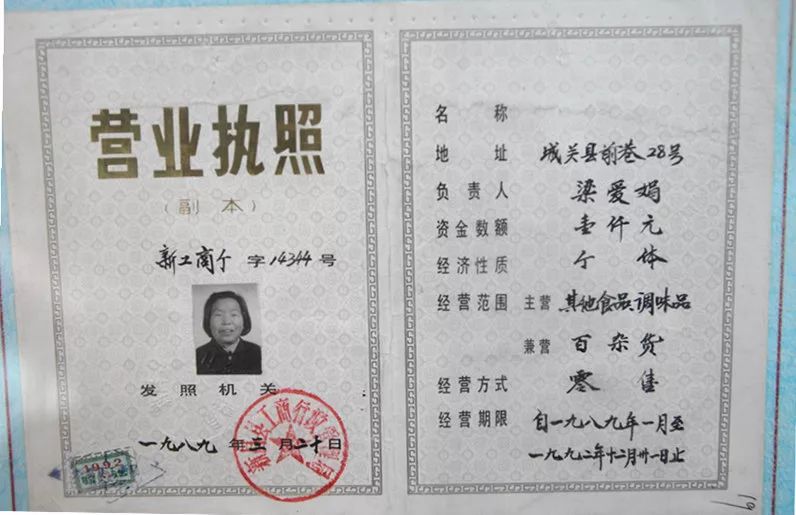 营业执照
（副本）
新工商个 字14344号
发照机关
一九八九 年 三 月 二十 日
1992
名称
地址 城关县前巷28号
负责人 梁爱娟
资金数额 壹仟元
经济性质 个体
经营范围 主营 其他食品、调味品
兼营 百杂货
经营方式 零售
经营期限 自一九八九年一月至
一九九二年十二月卅一日止
19